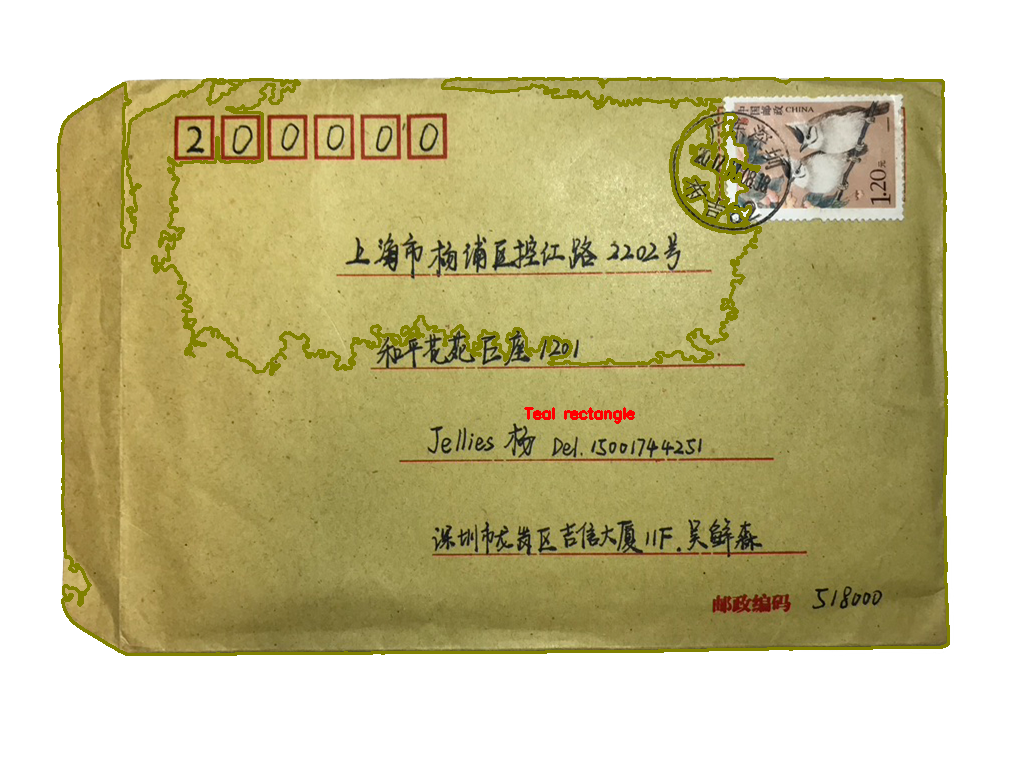 200000
中国邮政 CHINA
1.20元
上海市杨浦区控江路2202号
和平花苑巨座1201
Teal rectangle
Jellies 杨 Del. 15001744251
深圳市龙岗区吉信大厦11F.吴鲜森
邮政编码 518000